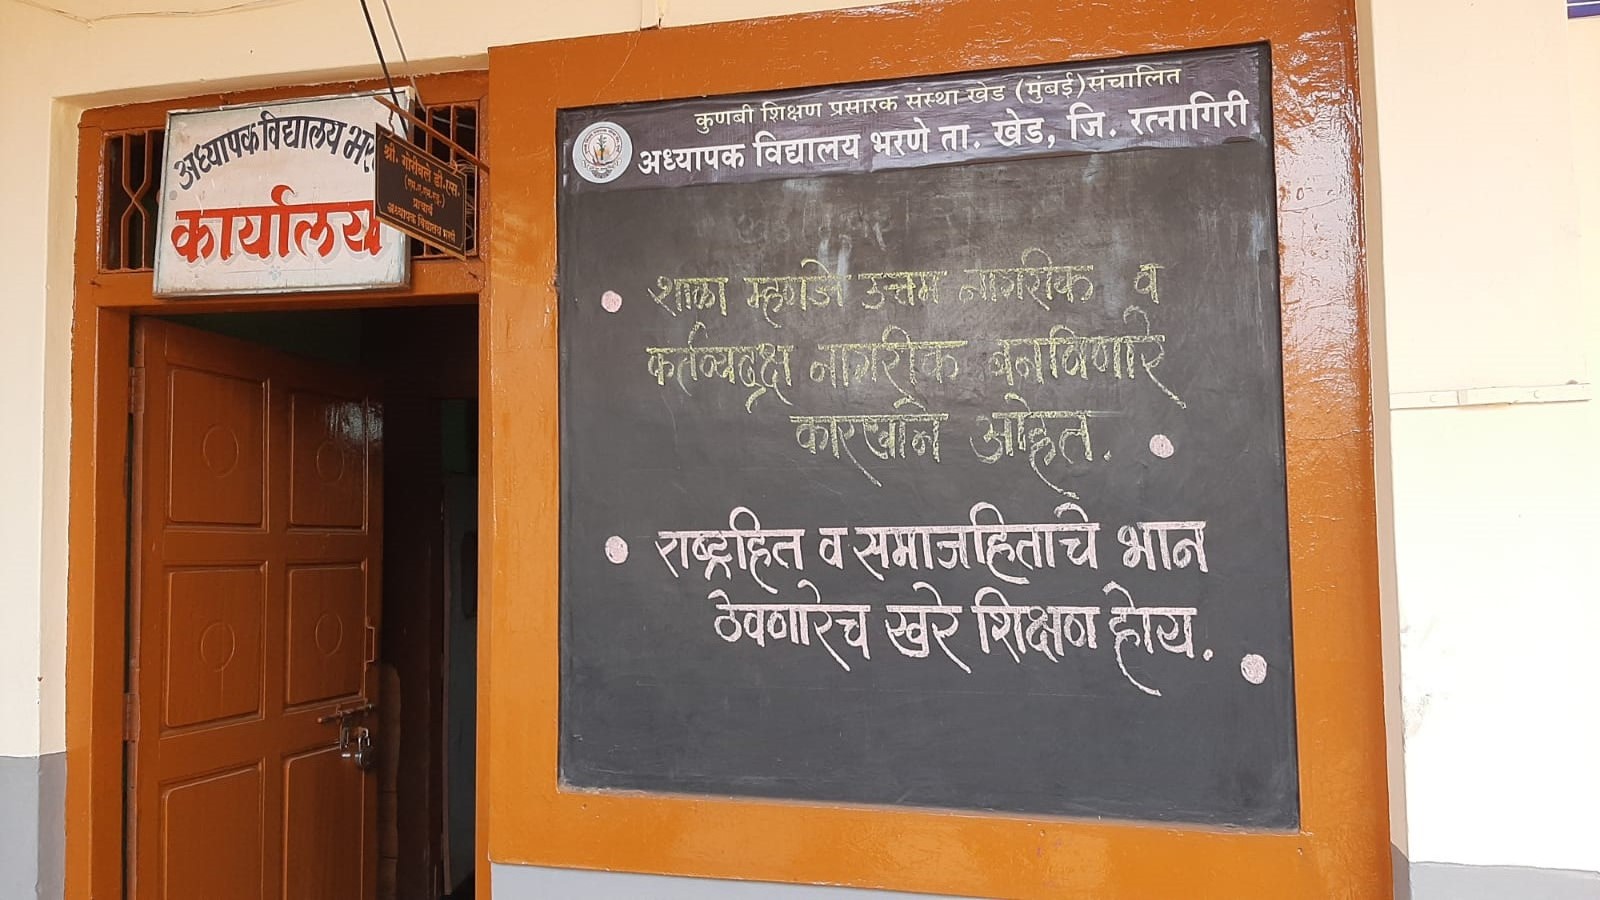 अध्यापक विद्यालय भर
कार्यालय
श्री. गोरीवले डी.एस.
प्राचार्य
अध्यापक विद्यालय भरणे
कुणबी शिक्षण प्रसारक संस्था खेड (मुंबई) संचालित
अध्यापक विद्यालय भरणे ता. खेड, जि. रत्नागिरी
शाळा म्हणजे उत्तम नागरीक व
कर्तव्यदक्ष नागरीक बनविणारे
कारखाने आहेत.
राष्ट्रहित व समाजहिताचे भान
ठेवणारेच खरे शिक्षण होय.